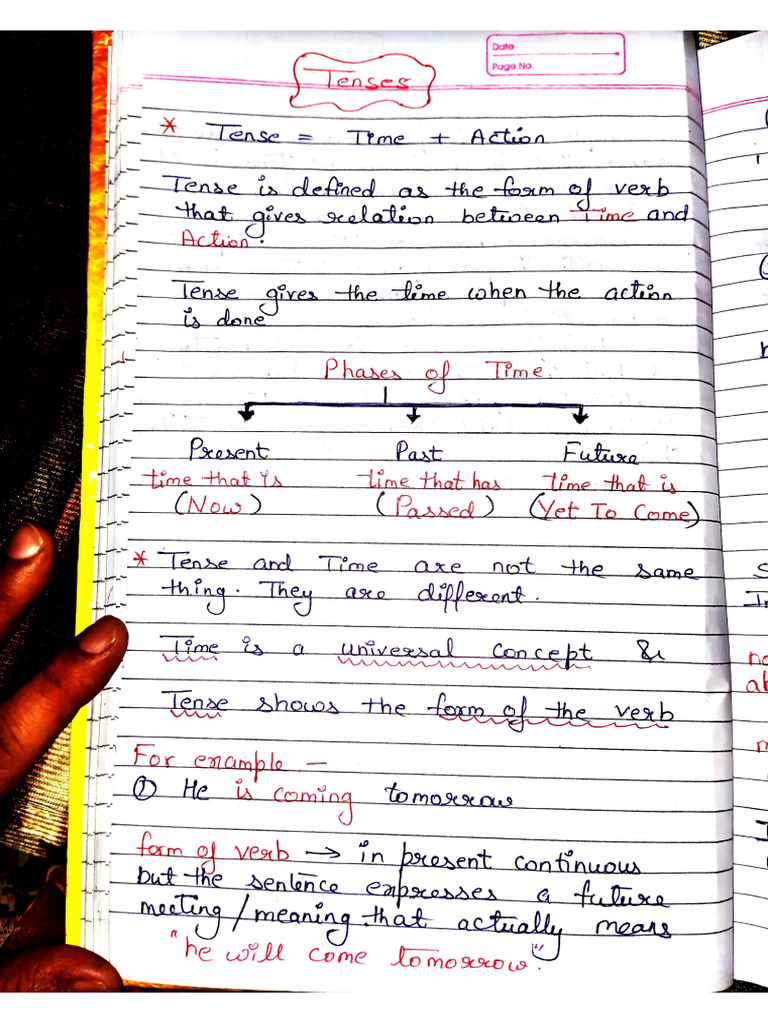 Date
Page No.
Tenses
* Tense = Time + Action
Tense is defined as the form of verb
that gives relation between Time and
Action.
Tense gives the time when the action
is done
Phases of Time.
Present Past Future
time that is time that has time that is
(Now) (Passed) (Yet To Come)
* Tense and Time are not the same
thing. They are different.
Time is a universal concept &
Tense shows the form of the verb
For example –
① He is coming tomorrow
form of verb → in present continuous
but the sentence expresses a future
meeting/meaning that actually means
"he will come tomorrow."